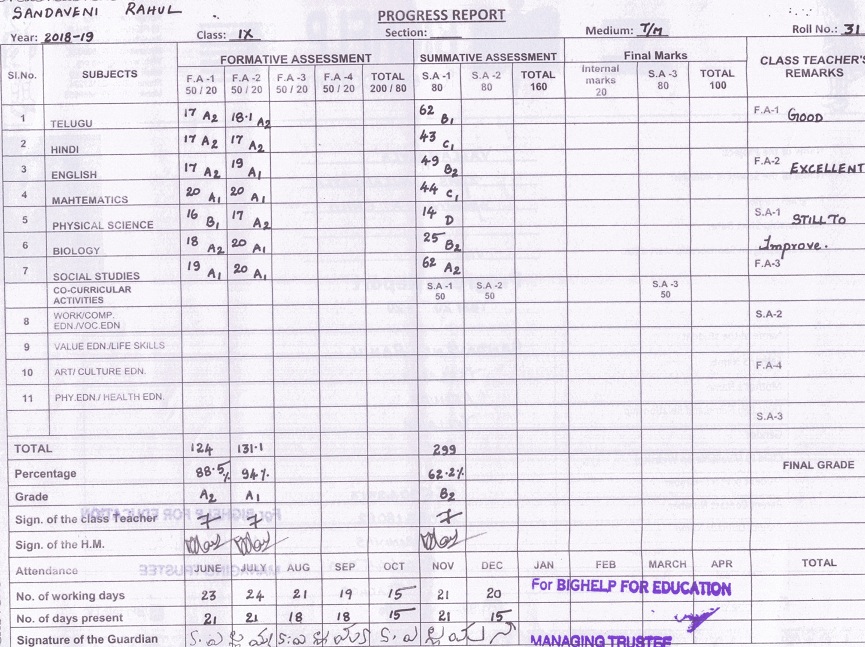 SANDAVENI RAHUL
PROGRESS REPORT
Year: 2018-19 Class: IX Section: Medium: T/M Roll No.: 31
Sl.No. SUBJECTS FORMATIVE ASSESSMENT SUMMATIVE ASSESSMENT Final Marks CLASS TEACHER'S REMARKS
F.A -1 50 / 20 F.A -2 50 / 20 F.A -3 50 / 20 F.A -4 50 / 20 TOTAL 200 / 80 S.A -1 80 S.A -2 80 TOTAL 160 Internal marks 20 S.A -3 80 TOTAL 100
1 TELUGU 17 A2 18.1 A2 62 B1 F.A-1 GOOD
2 HINDI 17 A2 17 A2 43 C1
3 ENGLISH 17 A2 19 A1 49 B2 F.A-2 EXCELLENT
4 MAHTEMATICS 20 A1 20 A1 44 C1
5 PHYSICAL SCIENCE 16 B1 17 A2 14 D S.A-1 STILL TO
6 BIOLOGY 18 A2 20 A1 25 B2 Improve.
7 SOCIAL STUDIES 19 A1 20 A1 62 A2 F.A-3
CO-CURRICULAR ACTIVITIES S.A -1 50 S.A -2 50 S.A -3 50
8 WORK/COMP. EDN./VOC.EDN S.A-2
9 VALUE EDN./LIFE SKILLS
10 ART/ CULTURE EDN. F.A-4
11 PHY.EDN./ HEALTH EDN.
S.A-3
TOTAL 124 131.1 299
Percentage 88.5% 94% 62.2% FINAL GRADE
Grade A2 A1 B2
Sign. of the class Teacher
Sign. of the H.M.
Attendance JUNE JULY AUG SEP OCT NOV DEC JAN FEB MARCH APR TOTAL
No. of working days 23 24 21 19 15 21 20 For BIGHELP FOR EDUCATION
No. of days present 21 21 18 18 15 21 15
Signature of the Guardian MANAGING TRUSTEE